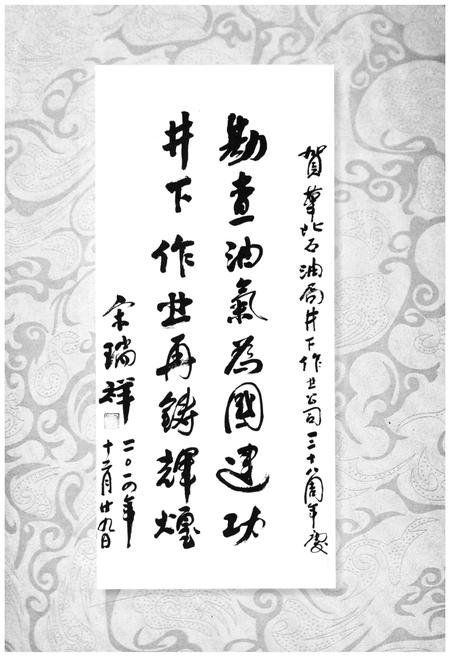 賀華北石油局井下作业公司三十八周年慶
勘查油氣為國建功
井下作业再鑄輝煌
宋瑞祥
二〇一四年
十二月廿九日